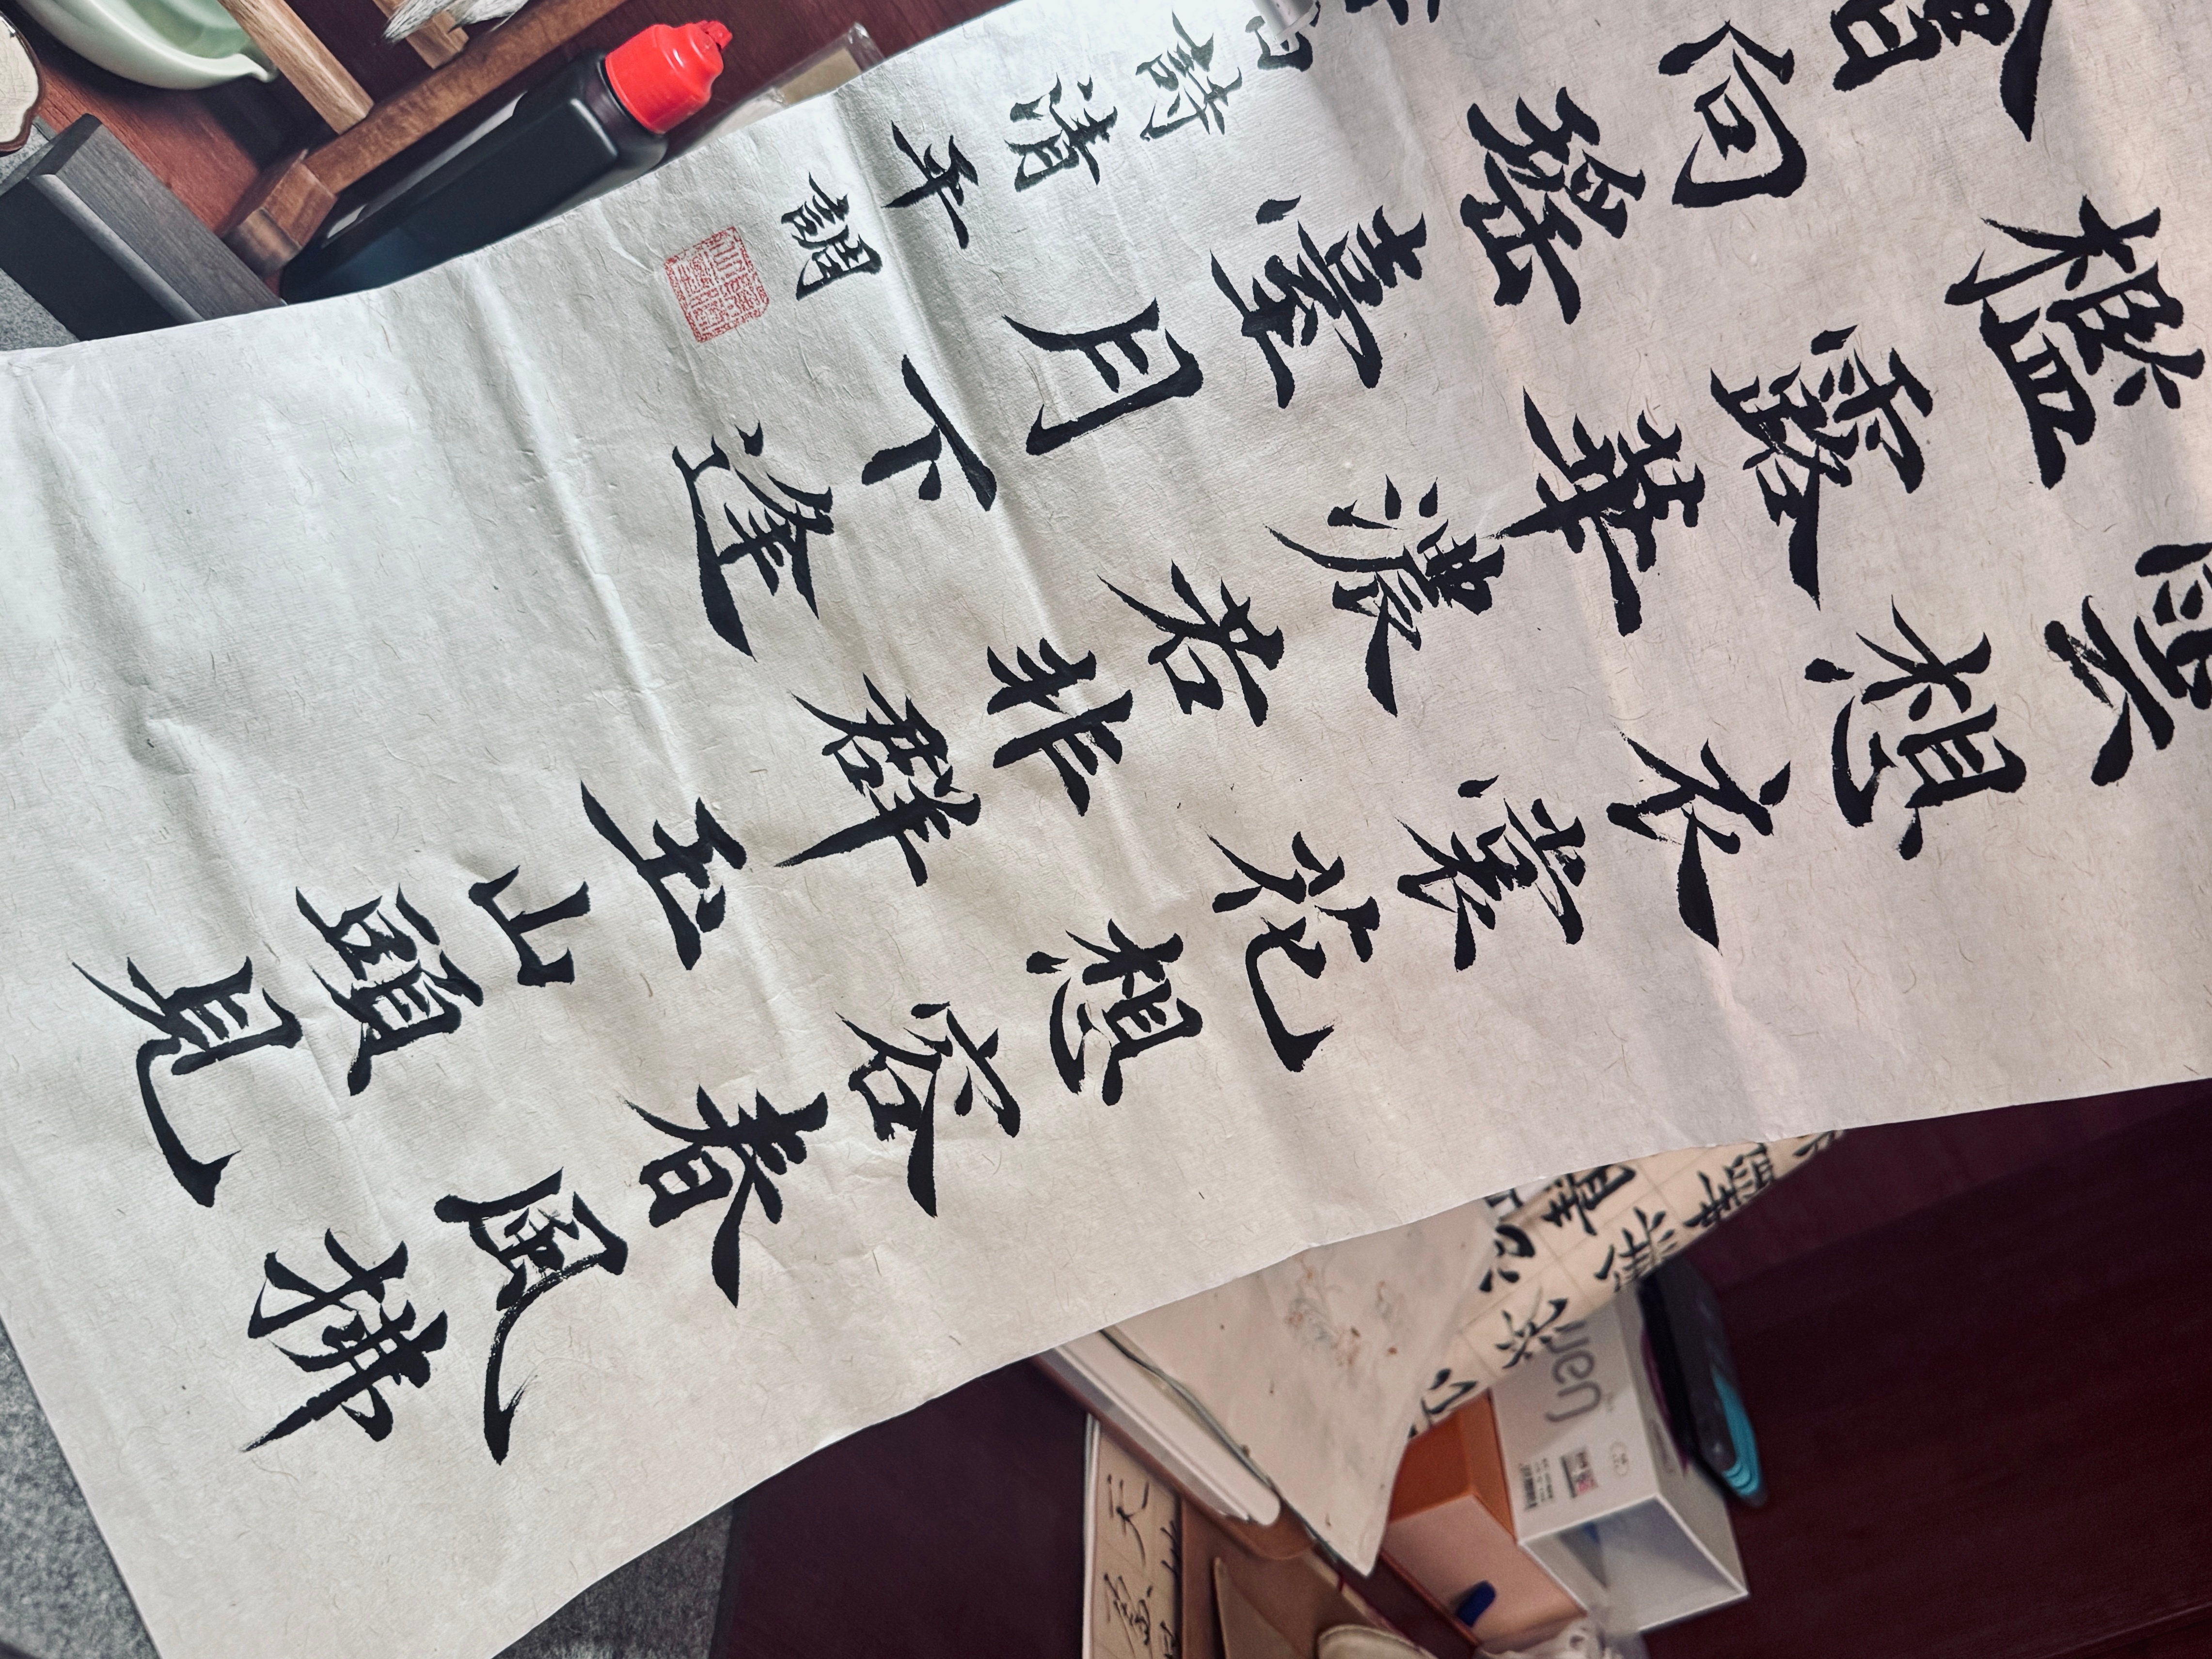 雲想衣裳花想容春風拂
檻露華濃若非群玉山頭見
會向瑤臺月下逢
白詩清平調